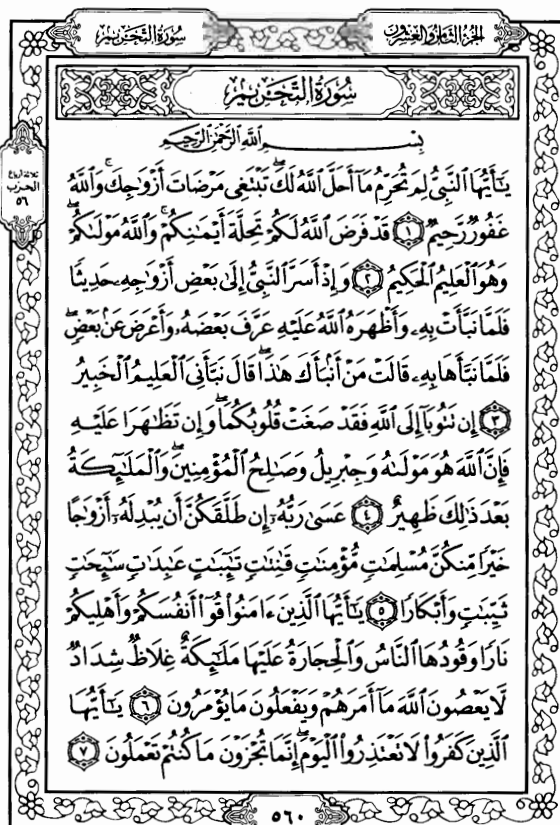 سُورَةُ التَّحْرِيمِ
الجُزْءُ الثَّامِنُ وَالعِشْرُونَ
سُورَةُ التَّحْرِيمِ
ثلاثة أرباع
الحزب
٥٦
بِسْمِ اللَّهِ الرَّحْمَٰنِ الرَّحِيمِ
يَٰٓأَيُّهَا ٱلنَّبِىُّ لِمَ تُحَرِّمُ مَآ أَحَلَّ ٱللَّهُ لَكَۖ تَبْتَغِى مَرْضَاتَ أَزْوَٰجِكَۚ وَٱللَّهُ
غَفُورٌ رَّحِيمٌ ١ قَدْ فَرَضَ ٱللَّهُ لَكُمْ تَحِلَّةَ أَيْمَٰنِكُمْۚ وَٱللَّهُ مَوْلَىٰكُمْۖ
وَهُوَ ٱلْعَلِيمُ ٱلْحَكِيمُ ٢ وَإِذْ أَسَرَّ ٱلنَّبِىُّ إِلَىٰ بَعْضِ أَزْوَٰجِهِۦ حَدِيثًا
فَلَمَّا نَبَّأَتْ بِهِۦ وَأَظْهَرَهُ ٱللَّهُ عَلَيْهِ عَرَّفَ بَعْضَهُۥ وَأَعْرَضَ عَنۢ بَعْضٍۖ
فَلَمَّا نَبَّأَهَا بِهِۦ قَالَتْ مَنْ أَنۢبَأَكَ هَٰذَاۖ قَالَ نَبَّأَنِىَ ٱلْعَلِيمُ ٱلْخَبِيرُ
٣ إِن تَتُوبَآ إِلَى ٱللَّهِ فَقَدْ صَغَتْ قُلُوبُكُمَاۖ وَإِن تَظَٰهَرَا عَلَيْهِ
فَإِنَّ ٱللَّهَ هُوَ مَوْلَىٰهُ وَجِبْرِيلُ وَصَٰلِحُ ٱلْمُؤْمِنِينَۖ وَٱلْمَلَٰٓئِكَةُ
بَعْدَ ذَٰلِكَ ظَهِيرٌ ٤ عَسَىٰ رَبُّهُۥٓ إِن طَلَّقَكُنَّ أَن يُبْدِلَهُۥٓ أَزْوَٰجًا
خَيْرًا مِّنكُنَّ مُسْلِمَٰتٍ مُّؤْمِنَٰتٍ قَٰنِتَٰتٍ تَٰٓئِبَٰتٍ عَٰبِدَٰتٍ سَٰٓئِحَٰتٍ
ثَيِّبَٰتٍ وَأَبْكَارًا ٥ يَٰٓأَيُّهَا ٱلَّذِينَ ءَامَنُوا۟ قُوٓا۟ أَنفُسَكُمْ وَأَهْلِيكُمْ
نَارًا وَقُودُهَا ٱلنَّاسُ وَٱلْحِجَارَةُ عَلَيْهَا مَلَٰٓئِكَةٌ غِلَاظٌ شِدَادٌ
لَّا يَعْصُونَ ٱللَّهَ مَآ أَمَرَهُمْ وَيَفْعَلُونَ مَا يُؤْمَرُونَ ٦ يَٰٓأَيُّهَا
ٱلَّذِينَ كَفَرُوا۟ لَا تَعْتَذِرُوا۟ ٱلْيَوْمَۖ إِنَّمَا تُجْزَوْنَ مَا كُنتُمْ تَعْمَلُونَ ٧
٥٦٠